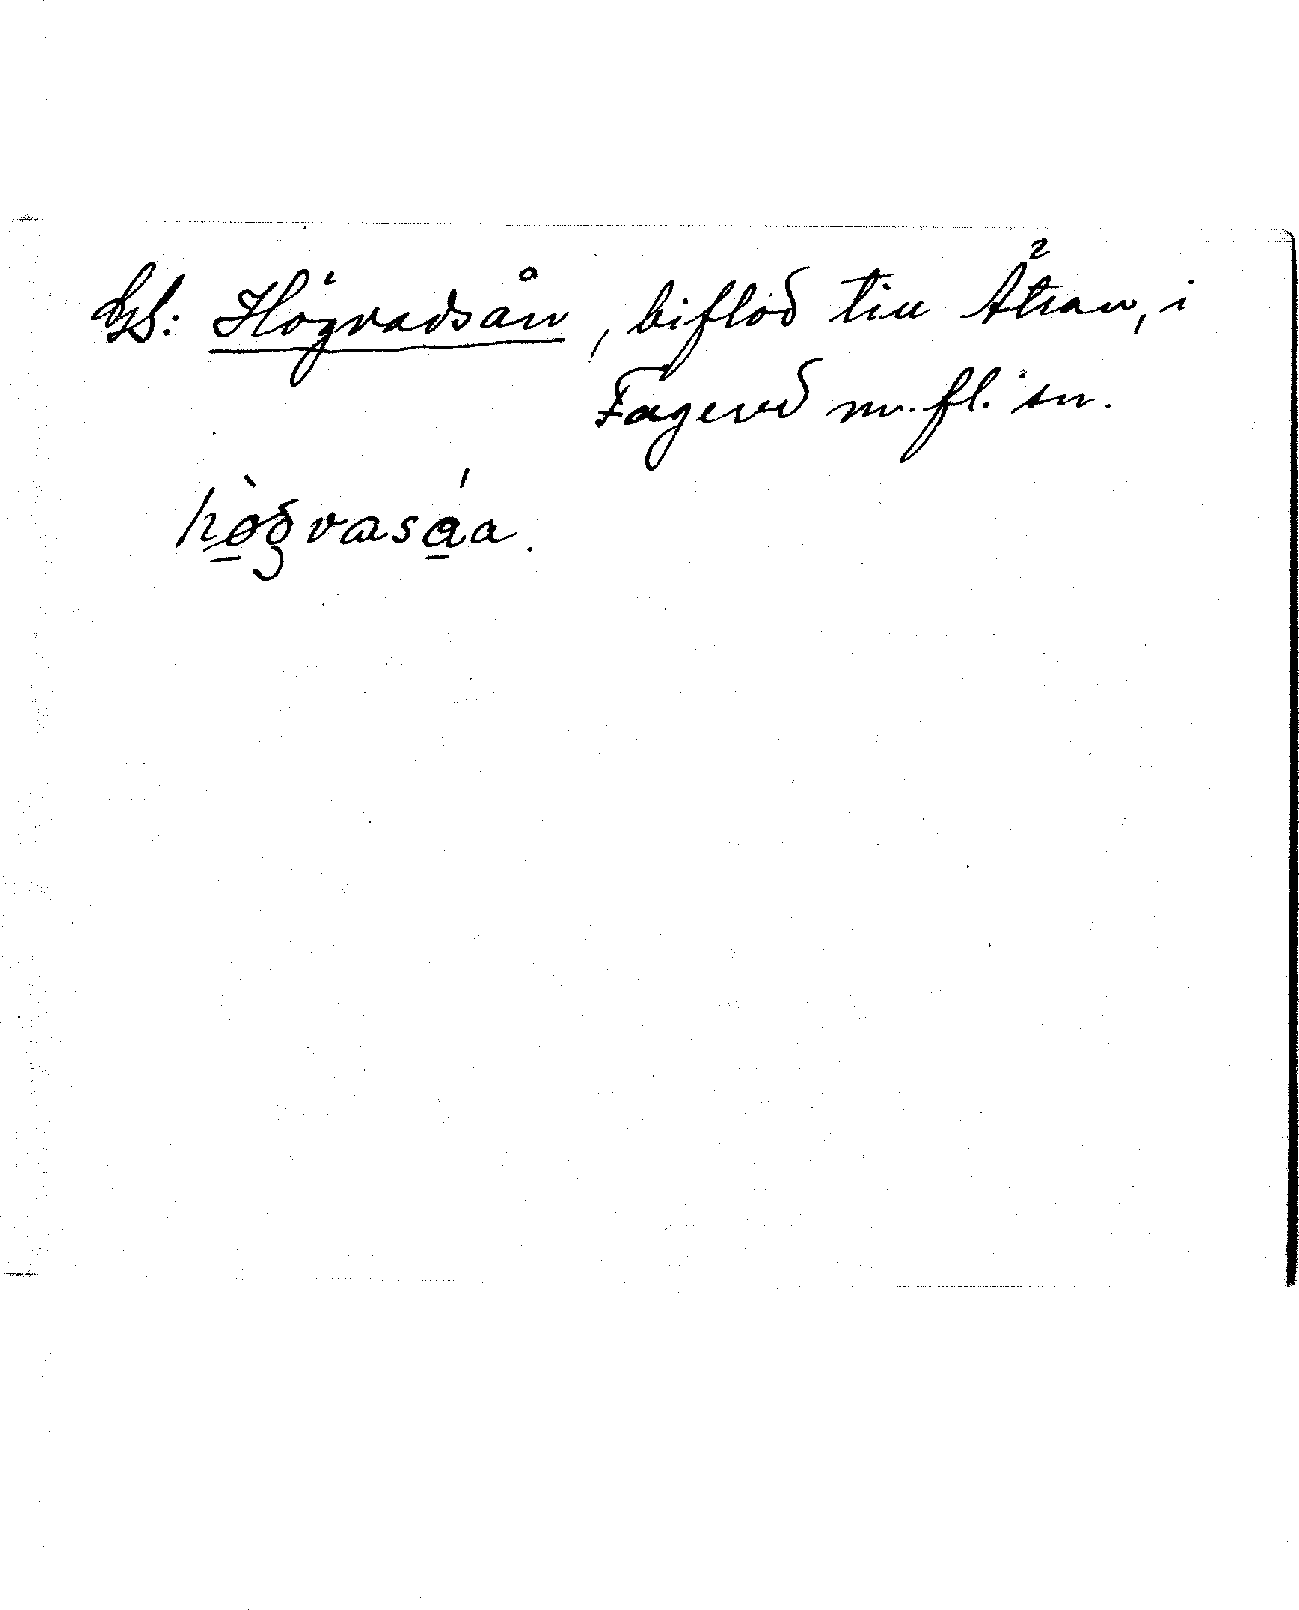 Gs: Högvadsån, biflod till Ätran, i
Fagered m. fl. sn.
hø̀gvasáa.